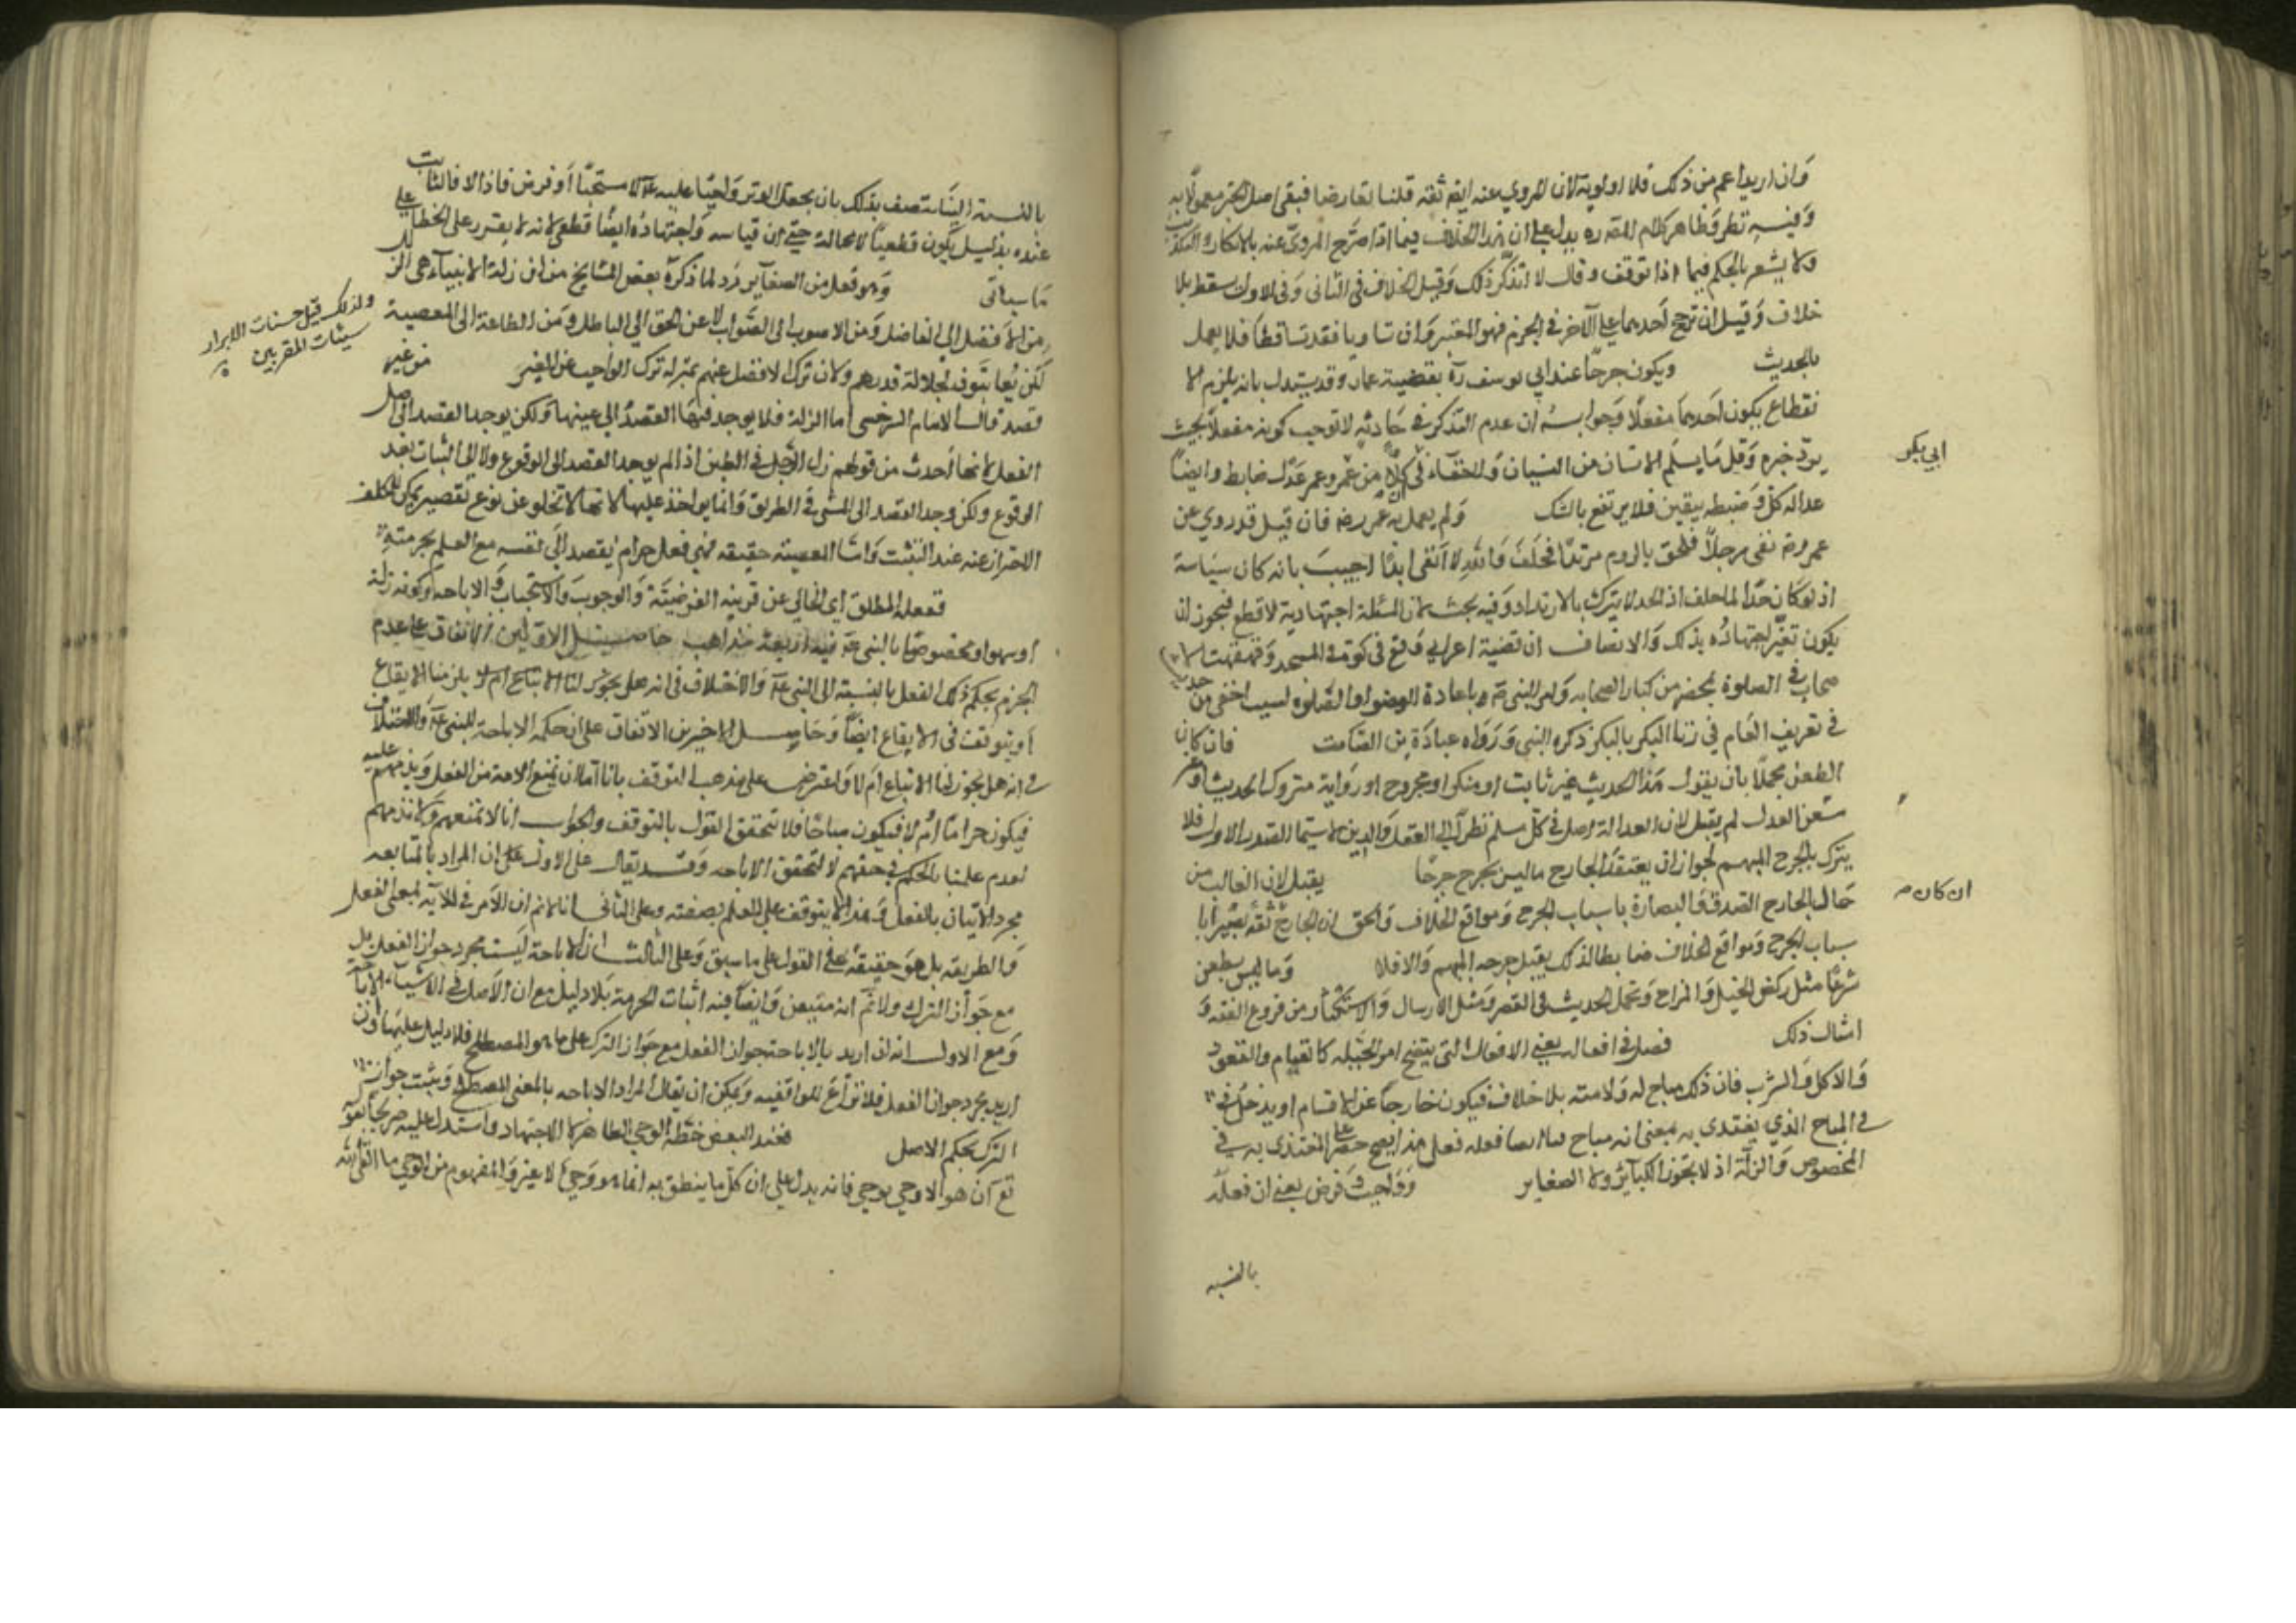 وان اريد اعم من ذلك فلا اولوية لان المروي عنه ايضا ثقة قلنا تعارضا فبقى اصل الخبر معمولا به
وفيه نظر وظاهر كلام المصره يدل على ان هذا الخلاف فيما اذا صرح المروي عنه بالانكار والتكذيب
ولا يشعر بالحكم فيما اذا توقف وقال لا اتذكر ذلك وقيل الخلاف في الثاني وفي الاول يسقط بلا
خلاف وقيل ان ترجح احدهما على الآخر في الجزم فهو المعتبر وان تساويا فقد تساقطا فلا يعمل
بالحديث ويكون جرحا عند ابي يوسف ره بقضية عمار وقد يستدل بانه يلزم الا
نقطاع بكون احدهما مغفلا وجوابه ان عدم التذكر في حادثة لا توجب كونه مغفلا بحيث
يرد خبره وقل ما يسلم الانسان من النسيان والخفاء في ان كلا من عمر وعمار عدل ضابط وايضا
عدالة كل وضبطه بيقين فلا يرتفع بالشك ولم يعمل به عمر رضه فان قيل قد روي عن
عمر رضه نفى رجلا فلحق بالروم مرتدا فحلف والله لا انفى ابدا اجيب بانه كان سياسة
اذ لو كان حدا لما حلف اذ الحد لا يترك بالارتداد وفيه بحث لان المسئلة اجتهادية لا قطع فيجوز ان
يكون تغير اجتهاده بذلك والانصاف ان قضية اعرابي وقع في كوة في المسجد وقهقهت الا
صحاب في الصلوة بمحضر من كبار الصحابه وامر النبي عم باعادة الوضوء والصلوة ليست اخفى من حديث
في تغريب العام في زنا البكر بالبكر ذكره النبي ورواه عبادة بن الصامت فان كان
الطعن مجملا بان يقول هذا الحديث غير ثابت او منكر او مجروح او رواية متروك الحديث او غير
العدل لم يقبل لان العدالة اصل في كل مسلم نظرا الى العقل والدين لا سيما الصدر الاول فلا
يترك بالجرح المبهم لجواز ان يعتقد الجارح ما ليس بجرح جرحا يقبل لان الغالب من
حال الجارح الصدق والبصارة باسباب الجرح ومواقع الخلاف والحق ان الجارح ثقة بصيرا با
سباب الجرح ومواقع الخلاف ضابطا لذلك يقبل جرحه المبهم والا فلا وما ليس بطعن
شرعا مثل ركض الخيل والمزاح وتحمل الحديث في الصغر ومثل الارسال والاستكثار من فروع الفقه و
امثال ذلك فصل في افعاله يعني الافعال التي يتضح امر الجبله كالقيام والقعود
والاكل والشرب فان ذلك مباح له ولامته بلا خلاف فيكون خارجا عن الاقسام او يدخل في
في المباح الذي يقتدى به بمعنى انه مباح لنا ايضا فعله فعلى هذا يصح حصر المقتدى به في
المخصوص والزلة اذ لا يجوز الكبائر ولا الصغاير وواجب وفرض يعني ان فعله
بالنسبه
ابي بكر
ان كان
بالنسبة الينا يتصف بذلك بان يجعل الوتر واجبا عليه لا مستحبا او فرض فاذ الا فالثابت
عنده بدليل يكون قطعيا لا محالة حتى ان قياسه واجتهاده ايضا قطعي لانه لا يقرر على الخطا على
ما سياتى وهو فعل من الصغاير رد لما ذكره بعض المشايخ من ان زلة الانبياء هي الزلل
من الافضل الى الفاضل ومن الاصوب الى الصواب لا عن الحق الى الباطل ومن الطاعة الى المعصية
لكن يعاتبون لجلالة قدرهم ولان ترك الافضل عنهم بمنزلة ترك الواجب عن الغير من غير
قصد قال الامام السرخسى اما الزلة فلا يوجد فيها القصد الى عينها ولكن يوجد القصد الى اصل
الفعل لانها احدث من قولهم زل الرجل في الطين اذا لم يوجد القصد الى الوقوع ولا الى الثبات بعد
الوقوع ولكن وجد القصد الى المشي في الطريق وانما يواخذ عليها لانها لا تخلو عن نوع تقصير يمكن للمكلف
الاحتراز عنه عند التثبت واما المعصية حقيقه فهي فعل حرام يقصد الى نفسه مع العلم بحرمته
ففعله المطلق اى الخالي عن قرينه الفرضيه والوجوب والاستحباب والاباحه وكونه زلة
او سهوا او مخصوصا بالنبي عم فيه اربعة مذاهب حاصل الاولين الاتفاق على عدم
الجزم بحكم ذلك الفعل بالنسبة الى النبي عم والاختلاف في انه هل يجوز لنا الاتباع ام لا يلزمنا الايقاع
او يتوقف في الايقاع ايضا وحاصل الاخيرين الاتفاق على ان حكمه الاباحة للنبي عم والاختلاف
في انه هل يجوز لنا الاتباع ام لا واعترض على مذهب التوقف بانا اما ان نمنع الامة من الفعل ونذمهم عليه
فيكون حراما ام لا فيكون مباحا فلا يتحقق القول بالتوقف والجواب انا لا نمنعهم ولا نذمهم
لعدم علمنا بالحكم في حقهم لا لتحقق الاباحه وقد يقال على الاول على ان المراد بالمتابعه
مجرد الاتيان بالفعل وهذا لا يتوقف على العلم بصفته وعلى الثاني انا لا نم ان الامر في الآيه بمعنى الفعل
والطريقه بل هو حقيقة في القول على ما سبق وعلى الثالث ان الاباحة ليست مجرد جواز الفعل بل
مع جواز الترك ولا نم انه متيقن وايضا فيه اثبات الحرمة بلا دليل مع ان الاصل في الاشياء الاباحة
ومع الاول انه ان اريد بالاباحة جواز الفعل مع جواز الترك على ما هو المصطلح فلا دليل عليها وان
اريد مجرد جواز الفعل فلا نزاع للواقفيه ويمكن ان يقال المراد الاباحه بالمعنى المصطلح ويثبت جواز
الترك بحكم الاصل فعند البعض حظه الوحي الظاهر لا الاجتهاد واستدل عليه صريحا بقوله
تع ان هو الا وحي يوحى فانه يدل على ان كل ما ينطق به انما هو وحي لا غير والمفهوم من الوحي ما القى الله
ولذلك قيل حسنات الابرار
سيئات المقربين